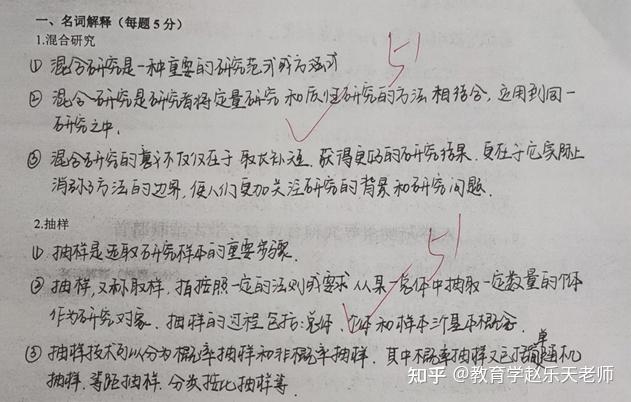 一、名词解释（每题5分）
1.混合研究
① 混合研究是一种重要的研究范式或方法式
② 混合研究是研究者将定量研究和质性研究的方法相结合，运用到同一
研究之中。
③ 混合研究的意义不仅仅在于取长补短、获得更好的研究结果，更在于它实际上
消弥了方法的边界，使人们更加关注研究的背景和研究问题.
5'
2.抽样
① 抽样是选取研究样本的重要步骤.
② 抽样，又称取样，指按照一定的法则或要求从某一总体中抽取一定数量的个体
作为研究对象. 抽样的过程包括：总体、个体和样本三个基本概念.
③ 抽样技术可以分为概率抽样和非概率抽样，其中概率抽样又包括简单随机
抽样、等距抽样、分类按比抽样等.
5'
知乎 @教育学赵乐天老师